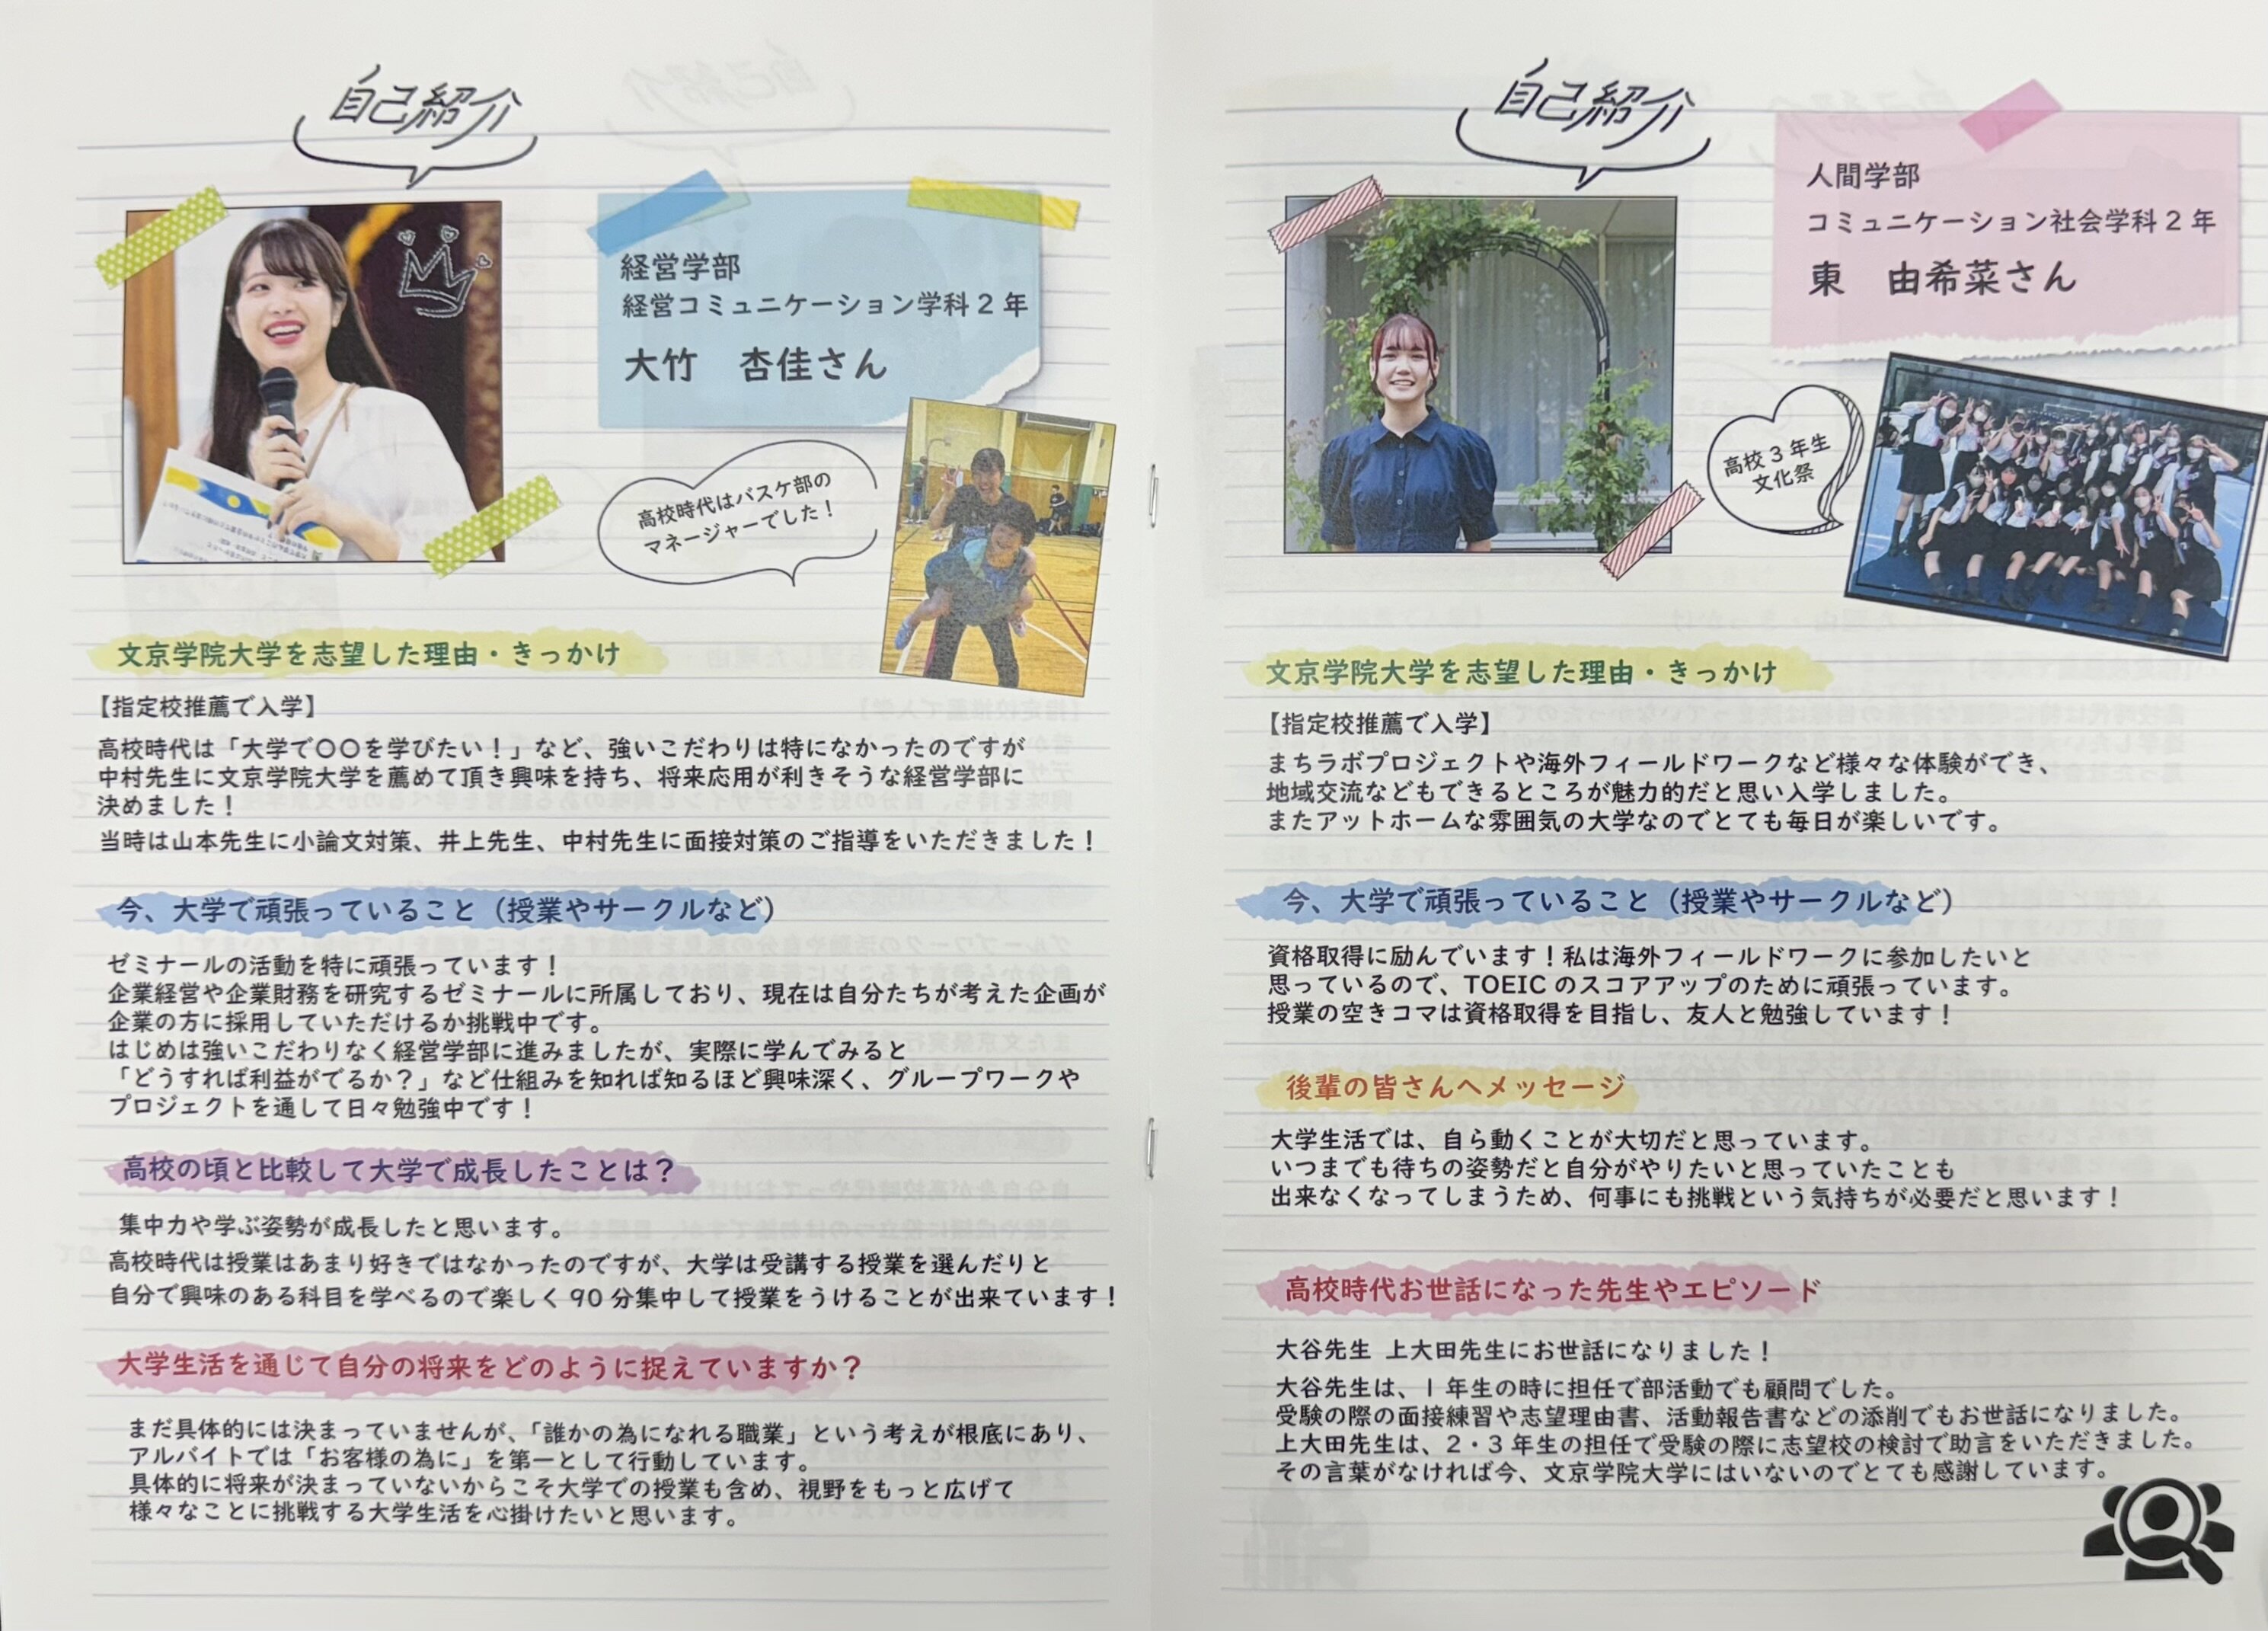 自己紹介
経営学部
経営コミュニケーション学科2年
大竹　杏佳さん
高校時代はバスケ部の
マネージャーでした！
文京学院大学を志望した理由・きっかけ
【指定校推薦で入学】
高校時代は「大学で〇〇を学びたい！」など、強いこだわりは特になかったのですが
中村先生に文京学院大学を薦めて頂き興味を持ち、将来応用が利きそうな経営学部に
決めました！
当時は山本先生に小論文対策、井上先生、中村先生に面接対策のご指導をいただきました！
今、大学で頑張っていること（授業やサークルなど）
ゼミナールの活動を特に頑張っています！
企業経営や企業財務を研究するゼミナールに所属しており、現在は自分たちが考えた企画が
企業の方に採用していただけるか挑戦中です。
はじめは強いこだわりなく経営学部に進みましたが、実際に学んでみると
「どうすれば利益がでるか？」など仕組みを知れば知るほど興味深く、グループワークや
プロジェクトを通して日々勉強中です！
高校の頃と比較して大学で成長したことは？
集中力や学ぶ姿勢が成長したと思います。
高校時代は授業はあまり好きではなかったのですが、大学は受講する授業を選んだりと
自分で興味のある科目を学べるので楽しく90分集中して授業をうけることが出来ています！
大学生活を通じて自分の将来をどのように捉えていますか？
まだ具体的には決まっていませんが、「誰かの為になれる職業」という考えが根底にあり、
アルバイトでは「お客様の為に」を第一として行動しています。
具体的に将来が決まっていないからこそ大学での授業も含め、視野をもっと広げて
様々なことに挑戦する大学生活を心掛けたいと思います。
自己紹介
人間学部
コミュニケーション社会学科2年
東　由希菜さん
高校3年生
文化祭
文京学院大学を志望した理由・きっかけ
【指定校推薦で入学】
まちラボプロジェクトや海外フィールドワークなど様々な体験ができ、
地域交流などもできるところが魅力的だと思い入学しました。
またアットホームな雰囲気の大学なのでとても毎日が楽しいです。
今、大学で頑張っていること（授業やサークルなど）
資格取得に励んでいます！私は海外フィールドワークに参加したいと
思っているので、TOEICのスコアアップのために頑張っています。
授業の空きコマは資格取得を目指し、友人と勉強しています！
後輩の皆さんへメッセージ
大学生活では、自ら動くことが大切だと思っています。
いつまでも待ちの姿勢だと自分がやりたいと思っていたことも
出来なくなってしまうため、何事にも挑戦という気持ちが必要だと思います！
高校時代お世話になった先生やエピソード
大谷先生 上大田先生にお世話になりました！
大谷先生は、1年生の時に担任で部活動でも顧問でした。
受験の際の面接練習や志望理由書、活動報告書などの添削でもお世話になりました。
上大田先生は、2・3年生の担任で受験の際に志望校の検討で助言をいただきました。
その言葉がなければ今、文京学院大学にはいないのでとても感謝しています。